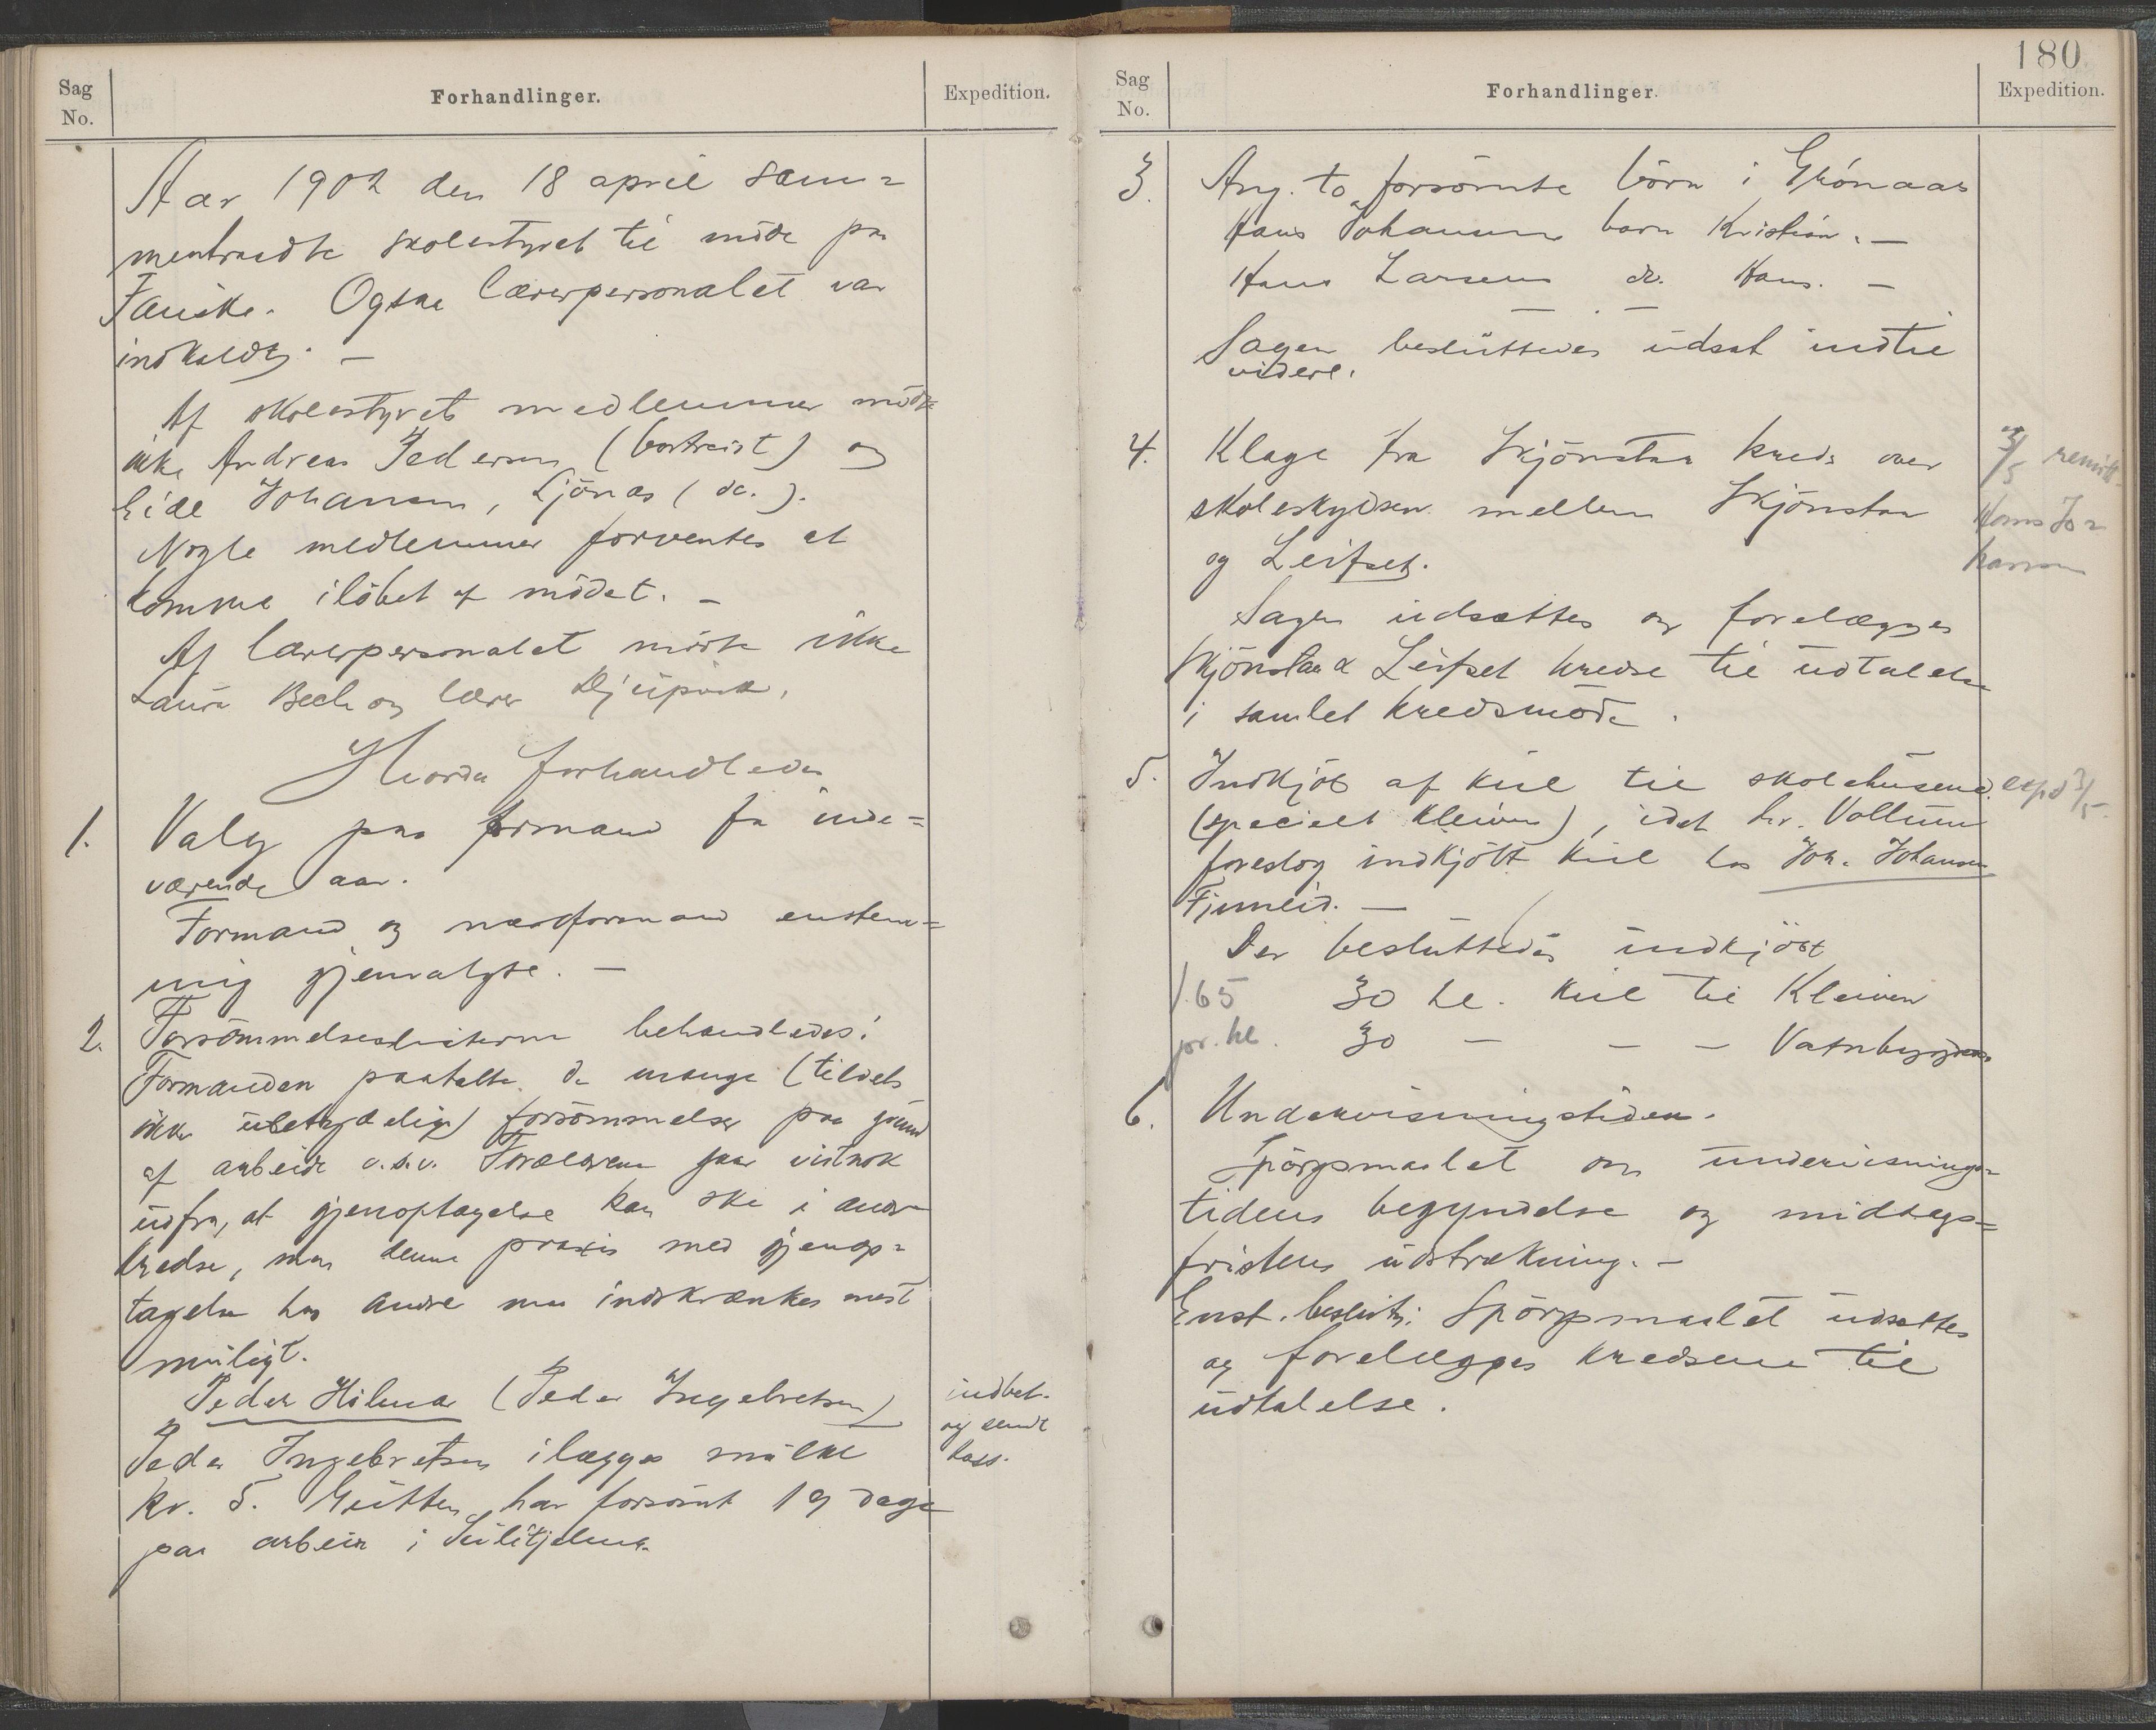 Sag
No.
Forhandlinger.
Expedition.
Aar 1902 den 18 april sam=
mentraadte skolestyret til møde paa
Fauske. Ogsaa lærerpersonalet var
indkaldt. —
Af skolestyrets medlemmer mødte
ikke Andreas Pedersen (bortreist) og
Eide Johansen, Sjönaa (do.).
Nogle medlemmer forventes at
komme iløbet af mödet. —
Af lærerpersonalet mödte ikke
Laura Bech og lærer Djupvik.
Hvorda forhandledes
1. Valg paa formand for inde=
værende aar.
Formand og næstformand enstem=
mig gjenvalgte. —
2. Forsømmelseslisterne behandledes.
Formanden paatalte de mange (tildels
ikke ubetydelige) forsømmelser paa grund
af arbeide o.s.v. Forældrene gaar vistnok
ud fra, at gjenoptagelse kan ske i andre
kredse, men denne praxis med gjenop=
tagelse hos andre maa indskrænkes mest
muligt.
Peder Hilmar (Peder Ingebretsen)
Peder Ingebretsen ilægges mulkt
kr. 5. Gutten har forsømt 19 dage
paa arbeide i Sulitjelma.
indbet.
og sendt
kass.
180.
Sag
No.
Forhandlinger.
Expedition.
3. Ang. to forsømte børn i Grønaas
Hans Johansens barn Kristian. —
Hans Larsens do. Hans. —
Sagen besluttedes udsat indtil
videre.
4. Klage fra Skjönstaa kreds over
skoleskydsen mellem Skjönstaa
og Leifset.
Sagen udsættes og forelægges
Skjönstaa & Leifset kredse til udtalelse
i samlet kredsmöde.
3/5 remitt.
Hans Jo=
hansen
5. Indkjöb af kul til skolehusene
(specielt Kleiven), idet hr. Vollum
foreslog indkjöbt kul hos Joh. Johansen
Finneid. —
expd 3/5.
Der besluttedes indkjöbt
1.65 30 hl. kul til Kleiven
pr. hl. 30 — — — Vatnbygden
6. Undervisningstiden.
Spörgsmaalet om undervisnings=
tidens begyndelse og middags=
fristens udstrækning. —
Enst. beslut.: Spörgsmaalet udsættes
og forelægges kredsene til
udtalelse.